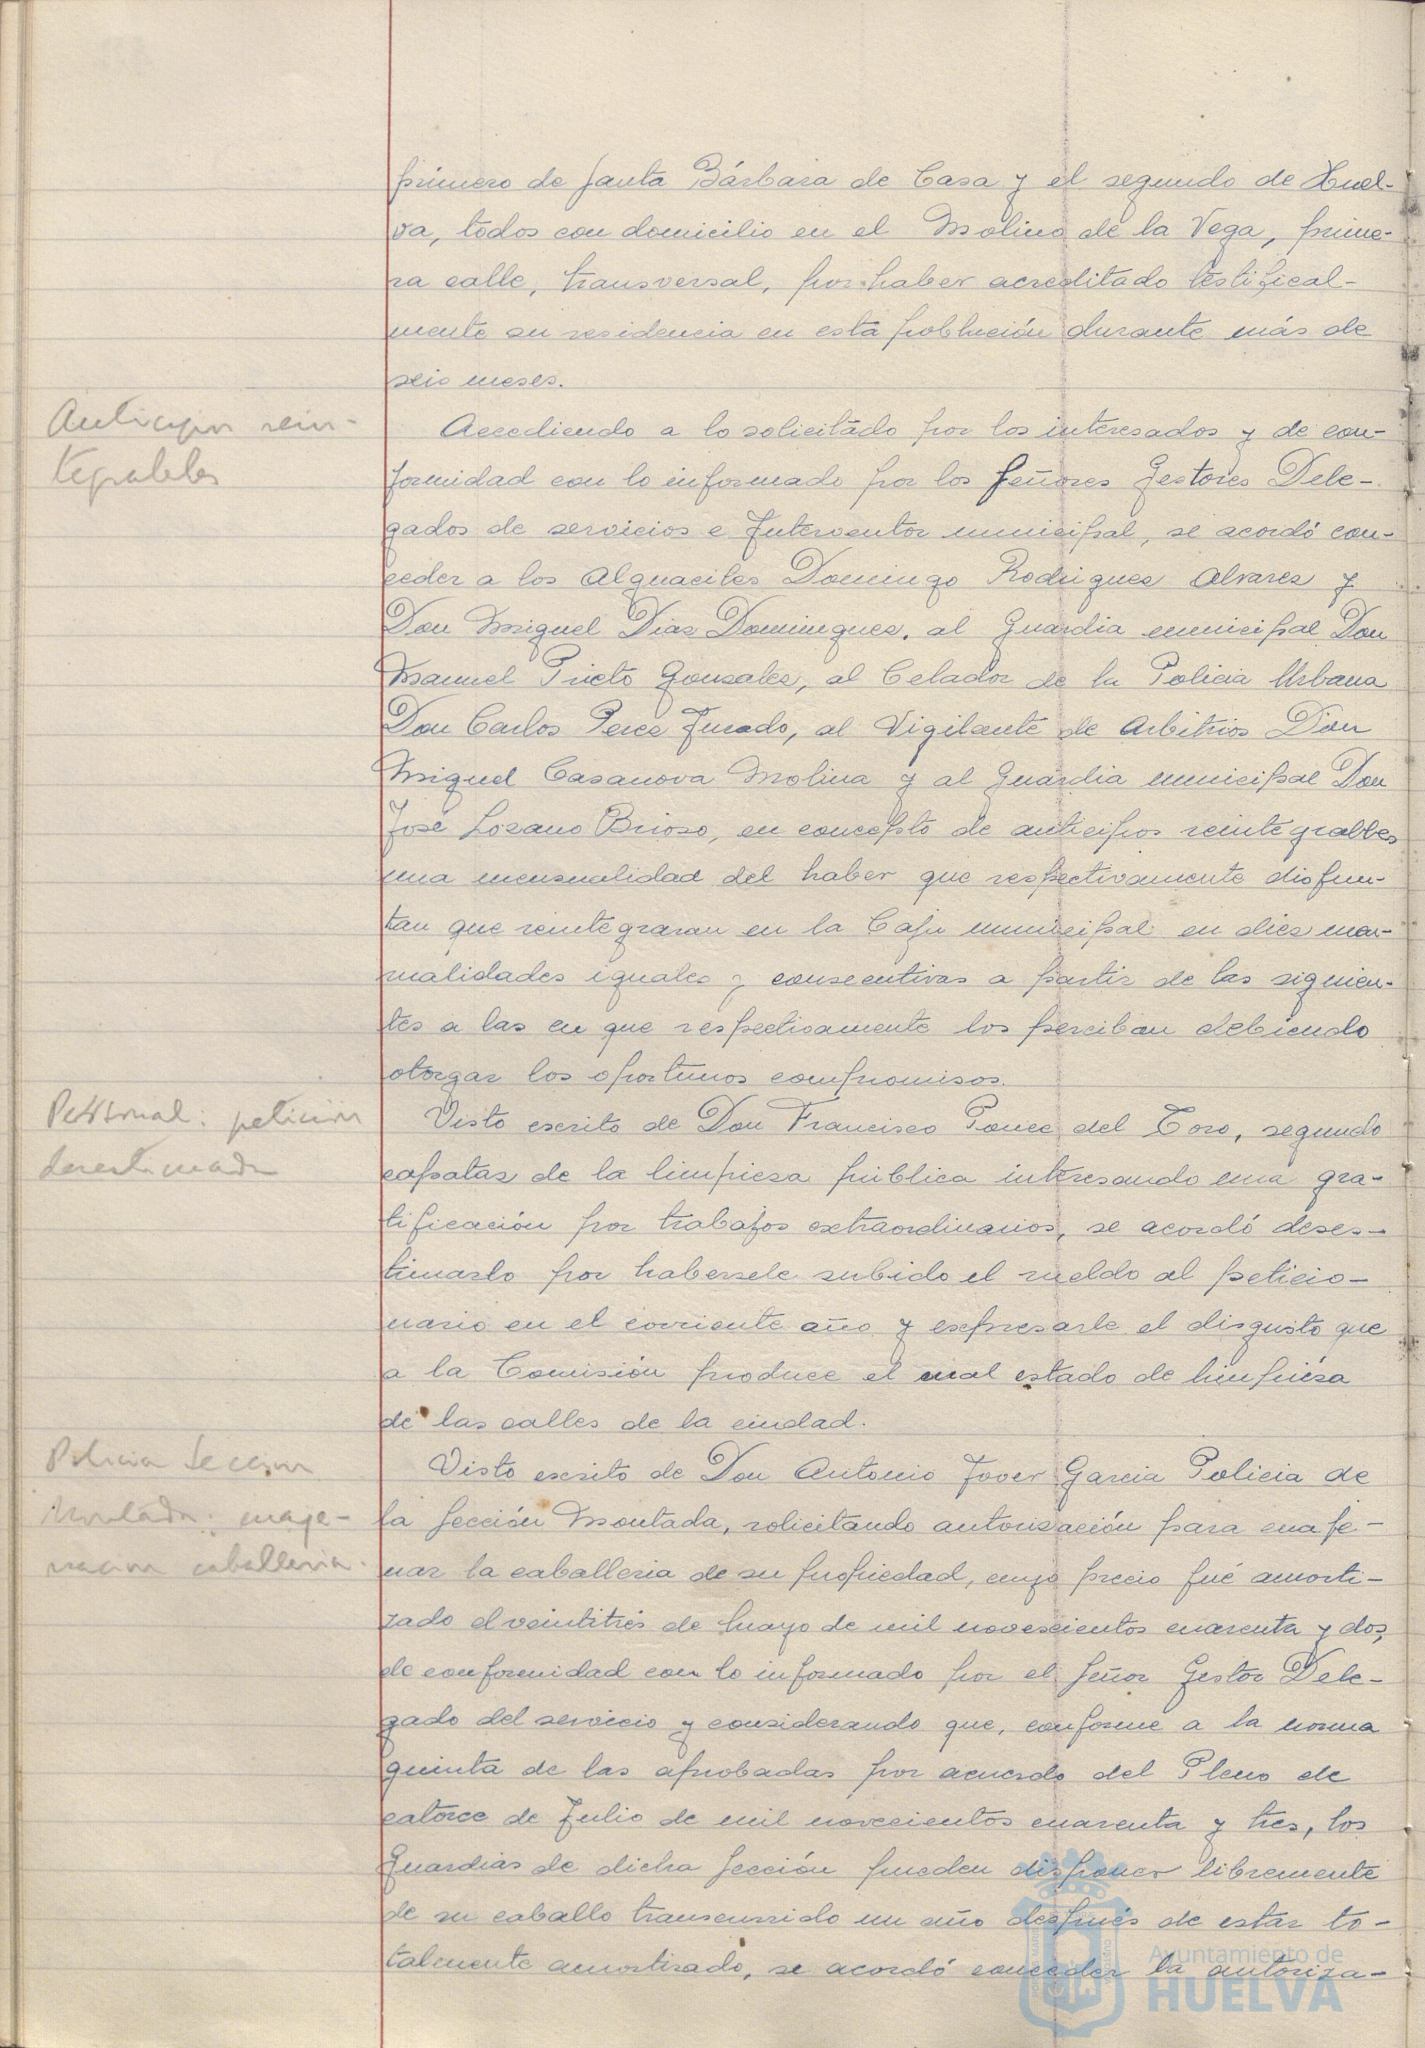 primero de Santa Bárbara de Casa y el segundo de Huel-
va, todos con domicilio en el Molino de la Vega, prime-
ra calle, transversal, por haber acreditado testifical-
mente su residencia en esta poblución durante más de
seis meses.
Anticipos rein-
tegrables
Accediendo a lo solicitado por los interesados y de con-
formidad con lo informado por los Señores Gestores Dele-
gados de servicios e Interventor municipal, se acordó con-
ceder a los Alguaciles Domingo Rodrigues Alvarez y
Don Miguel Dias Domingues, al Guardia municipal Don
Manuel Prieto Gonzales, al Celador de la Policia Urbana
Don Carlos Perez Jurado, al Vigilante de Arbitrios Don
Miguel Casanova Molina y al Guardia municipal Don
José Lozano Brioso, en concepto de anticipos reintegralbes
una mensualidad del haber que respectivamente disfru-
tan que reintegraran en la Caja municipal en dies men-
sualidades iguales y consecutivas a partir de las siguien-
tes a las en que respectivamente los perciban debiendo
otorgar los oportunos compromisos.
Personal: petición
desestimada
Visto escrito de Don Francisco Ponce del Toro, segundo
capataz de la limpieza pública interesando una gra-
tificación por trabajos extraordinarios, se acordó deses-
timarlo por habersele subido el sueldo al peticio-
nario en el corriente año y expresarle el disgusto que
a la Comisión produce el mal estado de limpiésa
de las calles de la ciudad.
Policia Seccion
Montada: enaje-
nacion caballeria.
Visto escrito de Don Antonio Jover Garcia Policia de
la Sección Montada, solicitando autorización para enaje-
nar la caballeria de su propiedad, cuyo precio fué amorti-
zado el veintitrés de Mayo de mil novescientos cuarenta y dos,
de conformidad con lo informado por el Señor Gestor Dele-
gado del servicio y considerando que, conforme a la norma
quinta de las aprobadas por acuerdo del Pleno de
catorce de Julio de mil novecientos cuarenta y tres, los
Guardias de dicha Sección pueden disponer libremente
de su caballo transcurrido un año después de estar to-
talmente amortizado, se acordó conceder la autoriza-
Ayuntamiento de
HUELVA